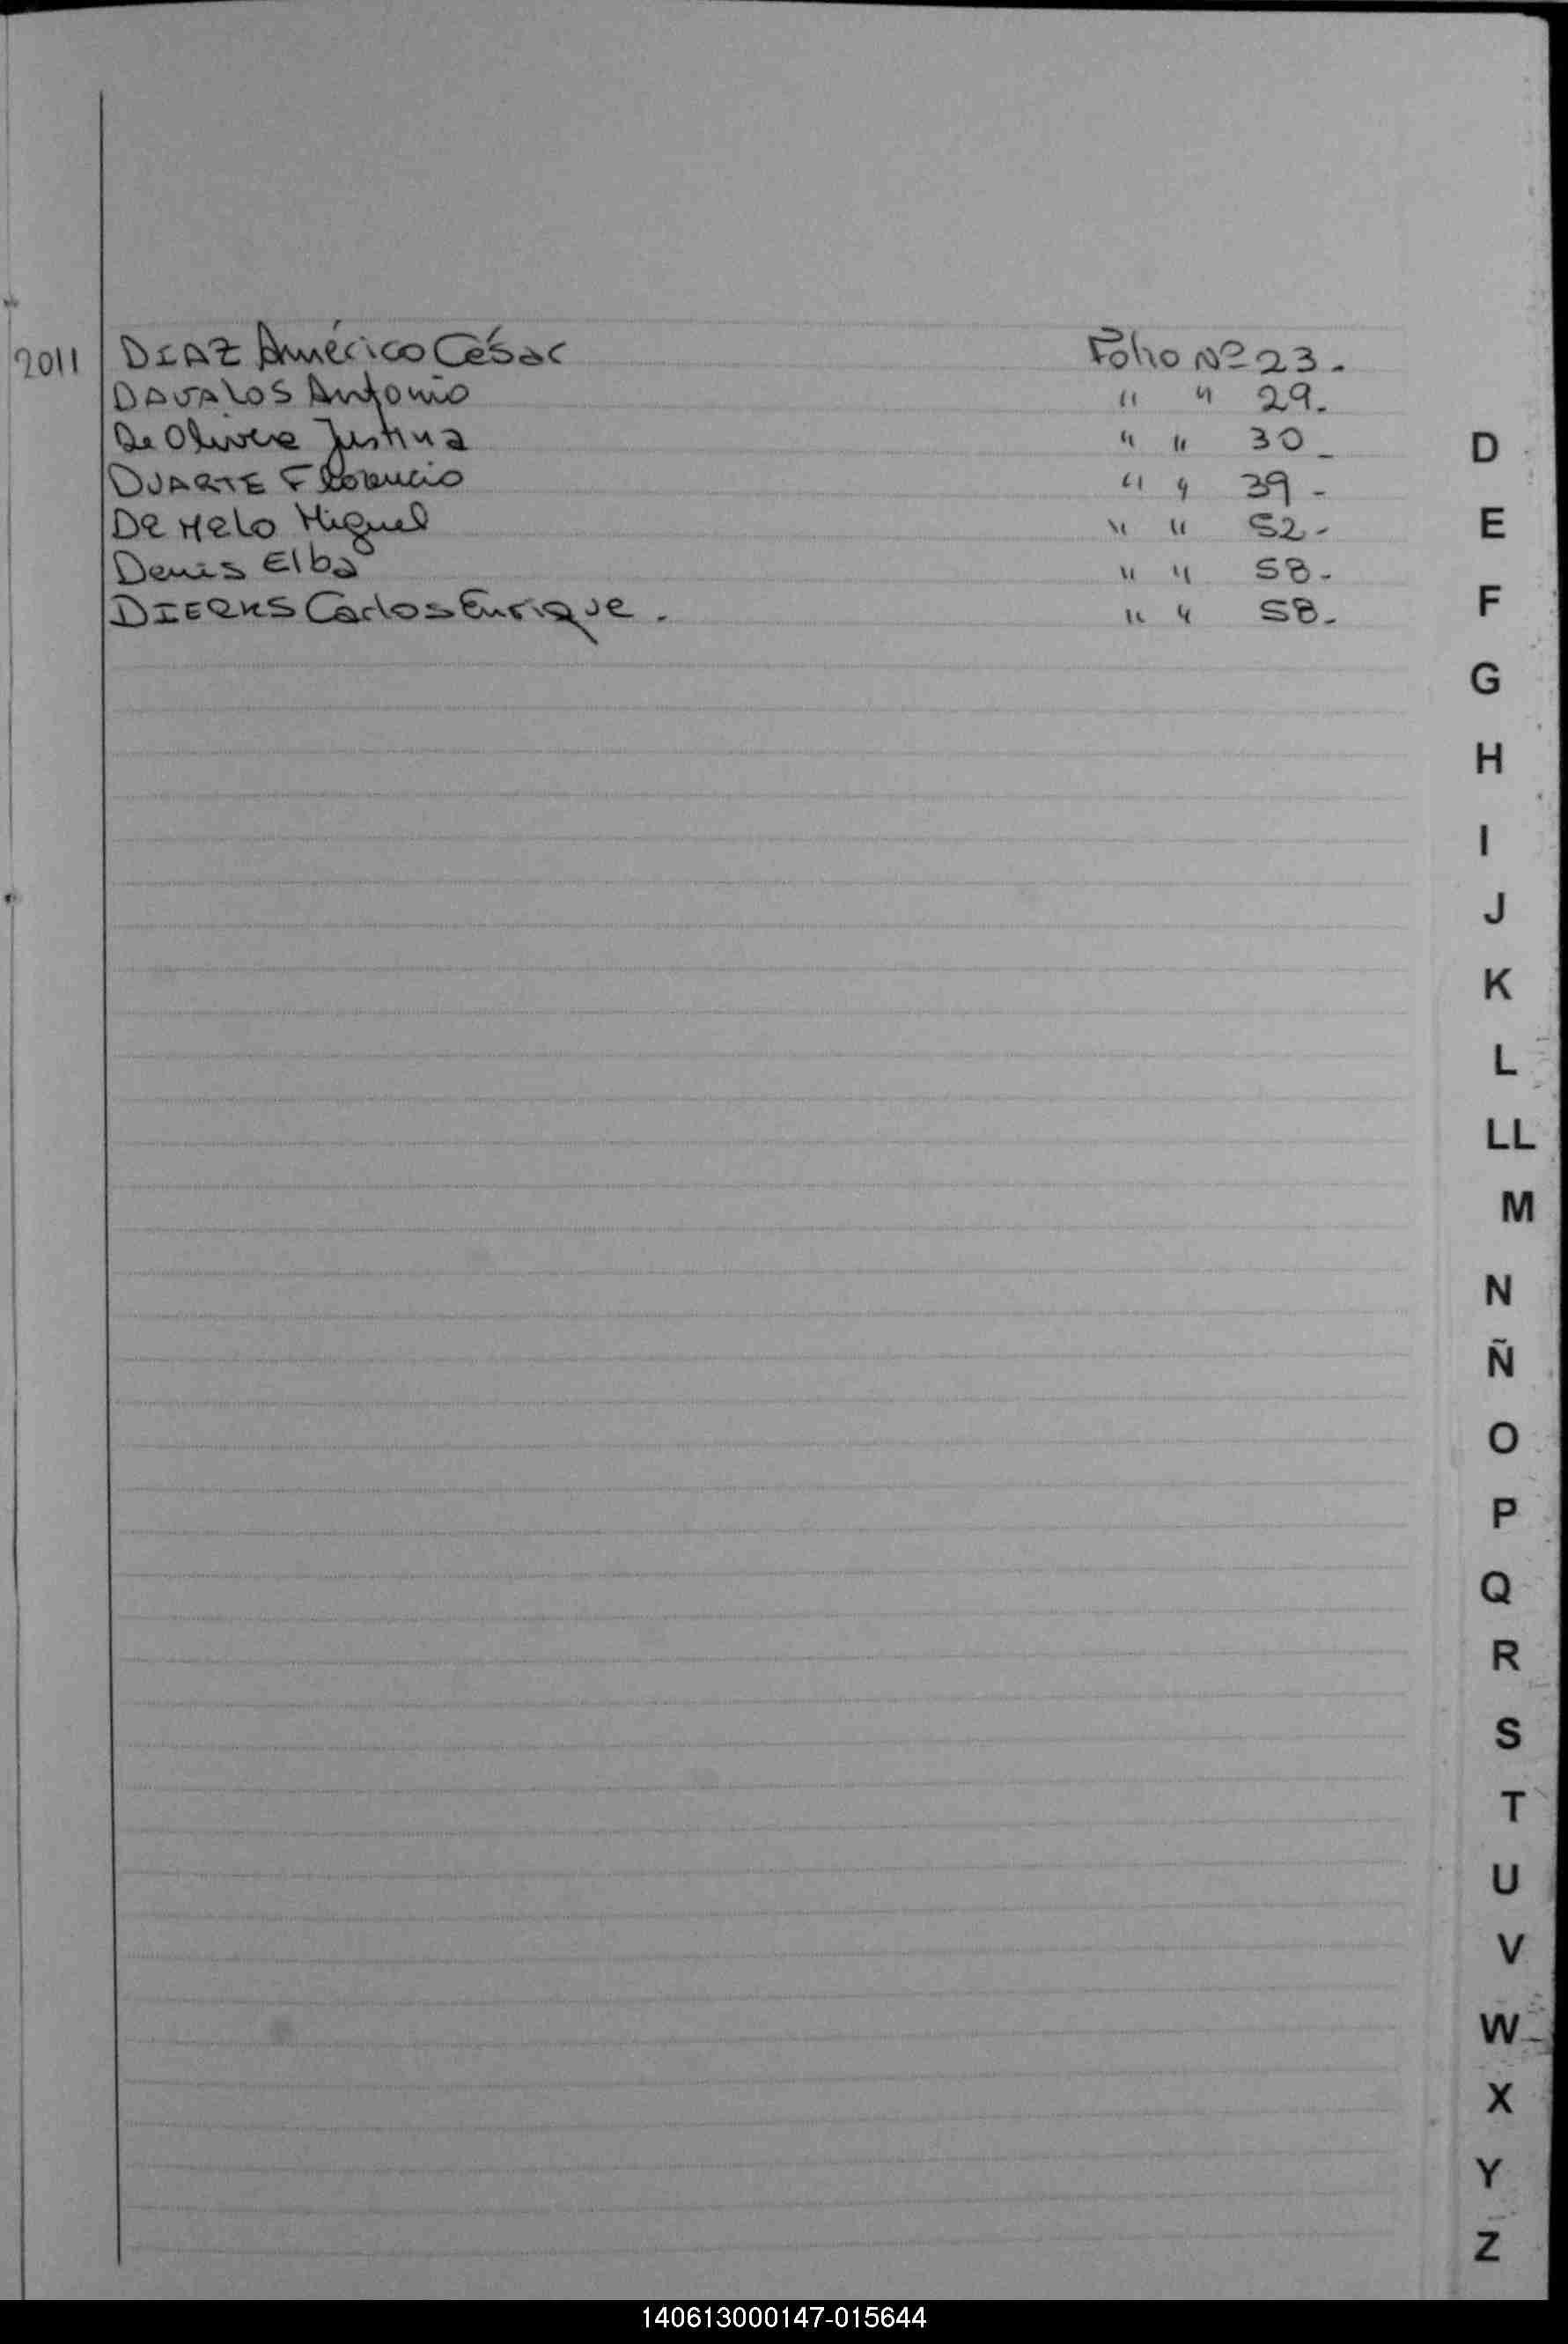 2011 DIAZ Américo César Folio Nº 23.
DAVALOS Antonio " " 29.
De Olivera Justina " " 30_
DUARTE Florencio " " 39-
De Melo Miguel " " 52-
Denis Elba " " 58.
DIERKS Carlos Enrique. " " 58.
D
E
F
G
H
I
J
K
L
LL
M
N
Ñ
O
P
Q
R
S
T
U
V
W
X
Y
Z
140613000147-015644